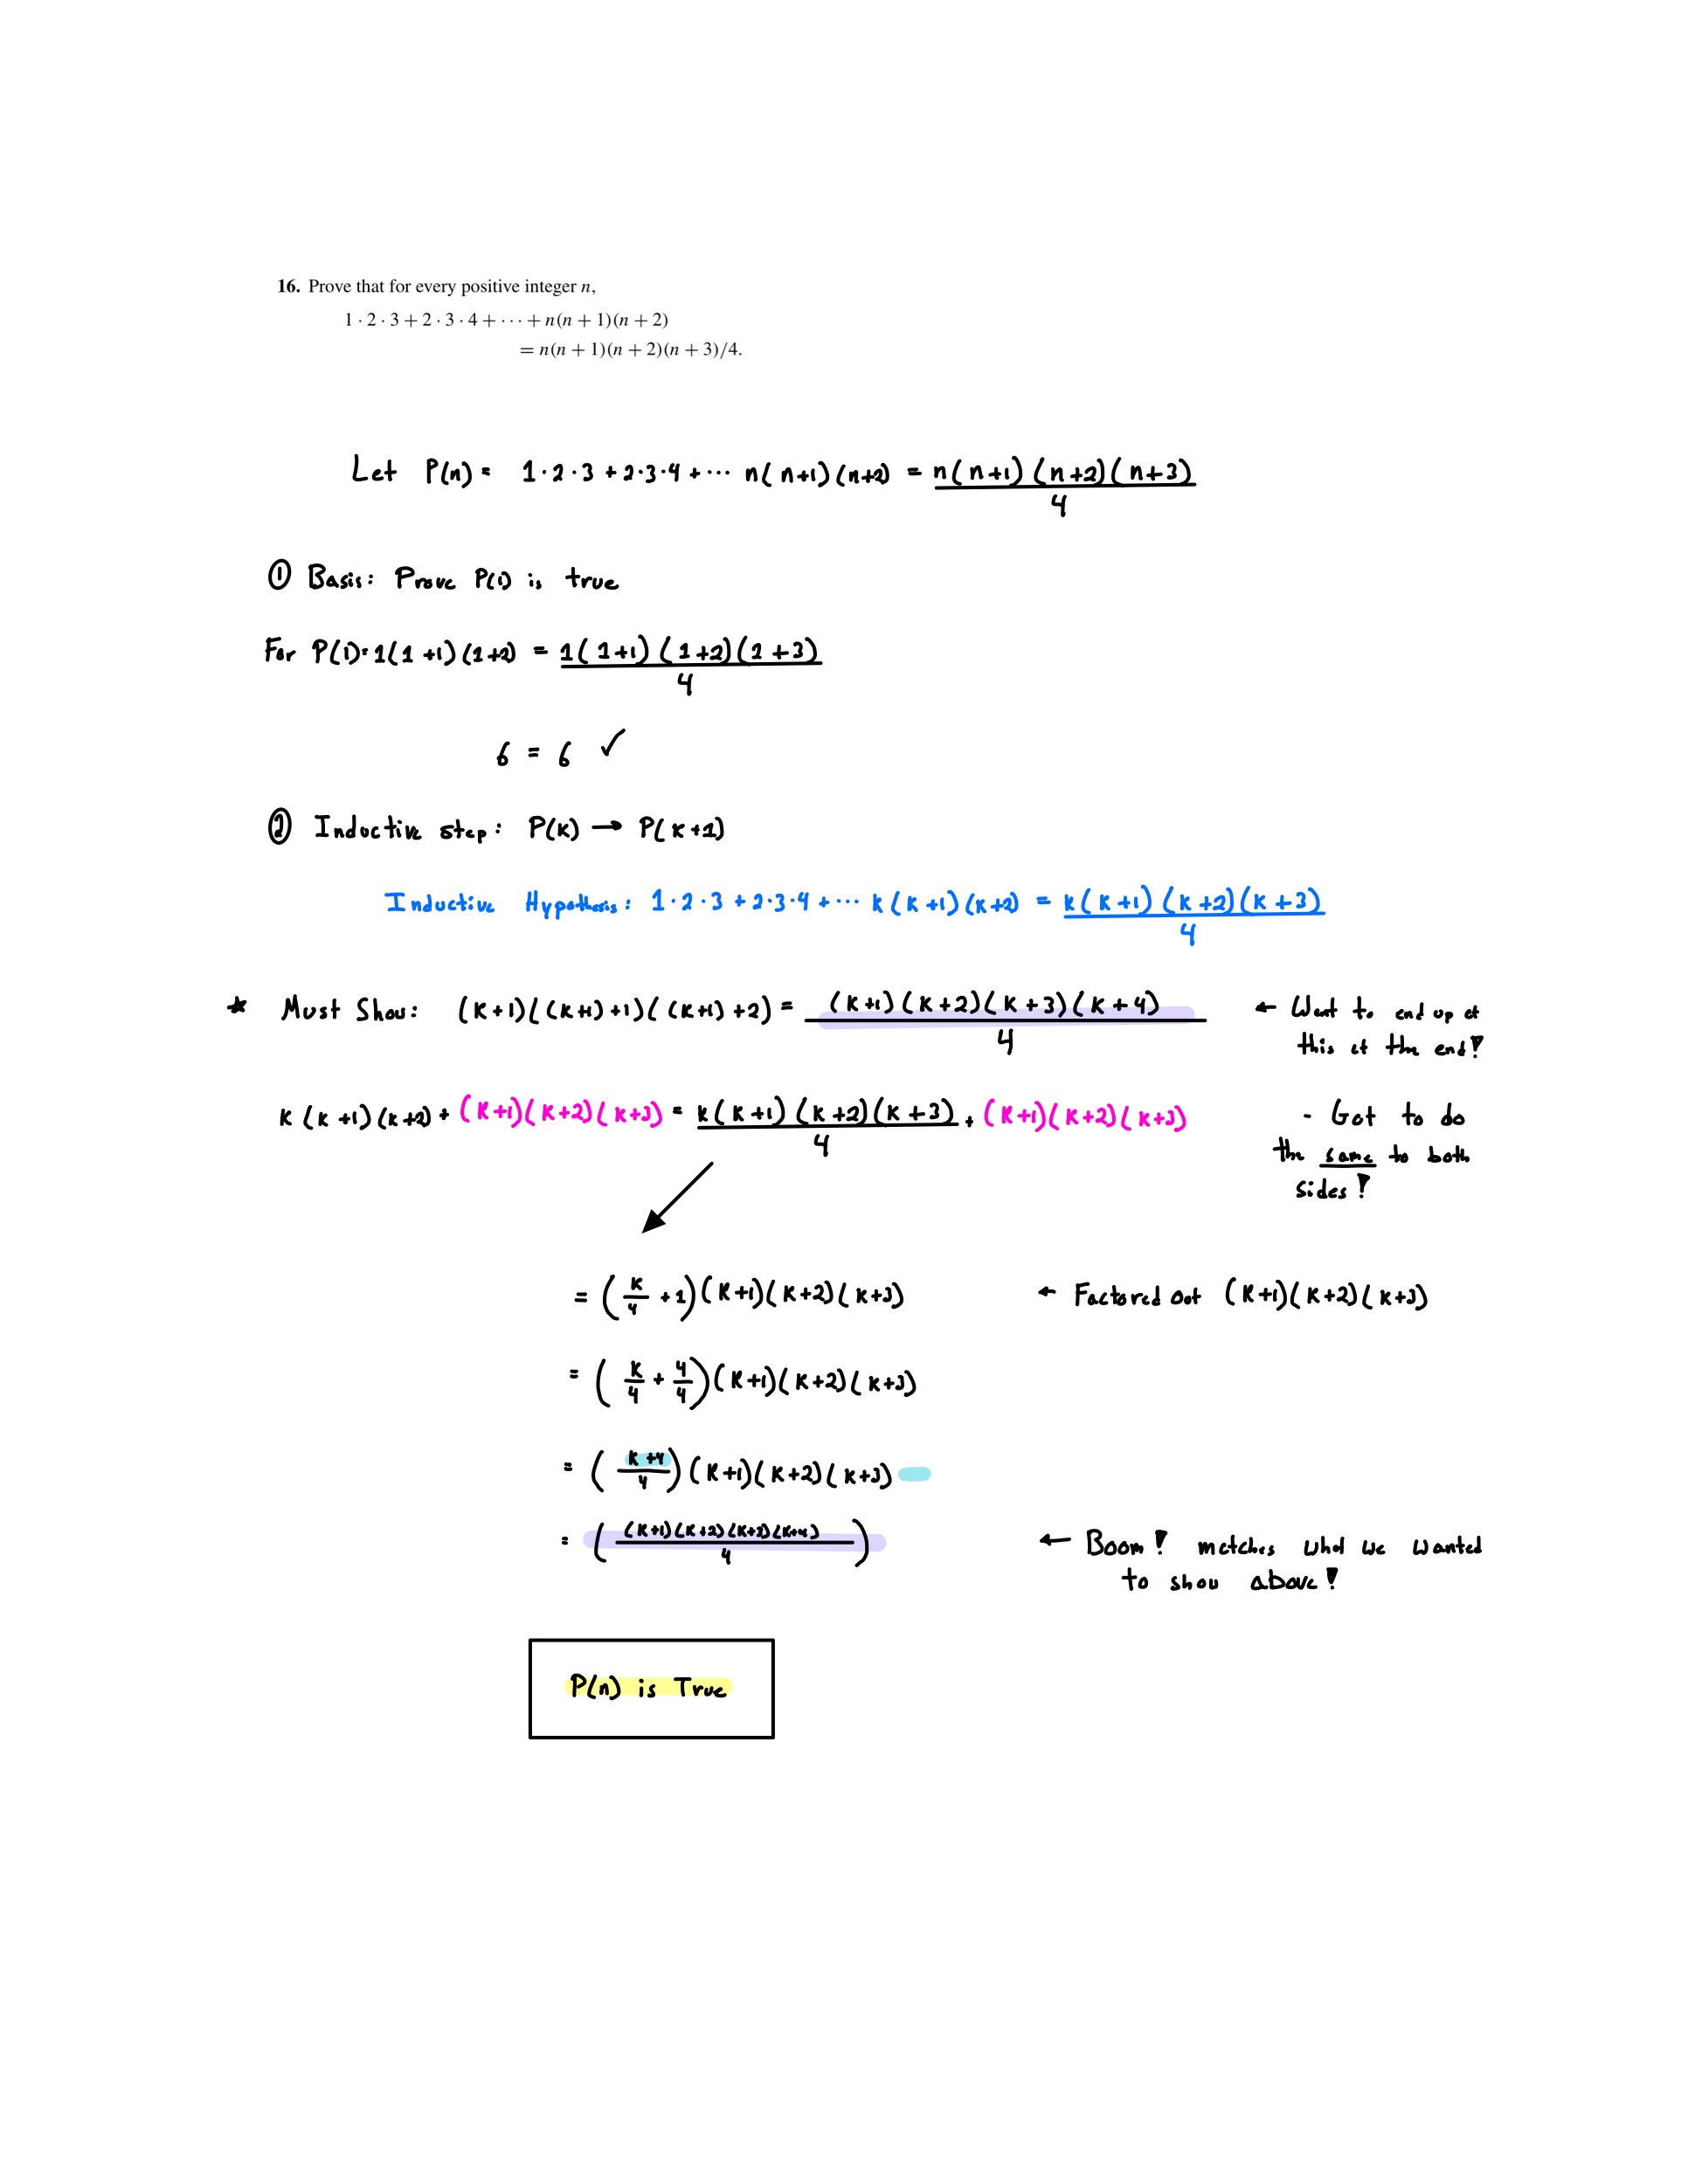 16. Prove that for every positive integer n,
1 · 2 · 3 + 2 · 3 · 4 + · · · + n(n + 1)(n + 2)
= n(n + 1)(n + 2)(n + 3)/4.
Let P(n) = 1·2·3 + 2·3·4 + ··· n(n+1)(n+2) = n(n+1)(n+2)(n+3)/4
① Basis: Prove P(1) is true
For P(1): 1(1+1)(1+2) = 1(1+1)(1+2)(1+3)/4
6 = 6 ✓
② Inductive step: P(k) → P(k+1)
Inductive Hypothesis: 1·2·3 + 2·3·4 + ··· k(k+1)(k+2) = k(k+1)(k+2)(k+3)/4
* Must Show: (k+1)((k+1)+1)((k+1)+2) = (k+1)(k+2)(k+3)(k+4)/4 ← Want to end up at
this at the end!
k(k+1)(k+2) + (k+1)(k+2)(k+3) = k(k+1)(k+2)(k+3)/4 + (k+1)(k+2)(k+3) - Got to do
the same to both
sides!
= (k/4 + 1)(k+1)(k+2)(k+3) ← Factored out (k+1)(k+2)(k+3)
= (k/4 + 4/4)(k+1)(k+2)(k+3)
= ((k+4)/4)(k+1)(k+2)(k+3)
= ((k+1)(k+2)(k+3)(k+4)/4) ← Boom! matches what we wanted
to show above!
P(n) is True